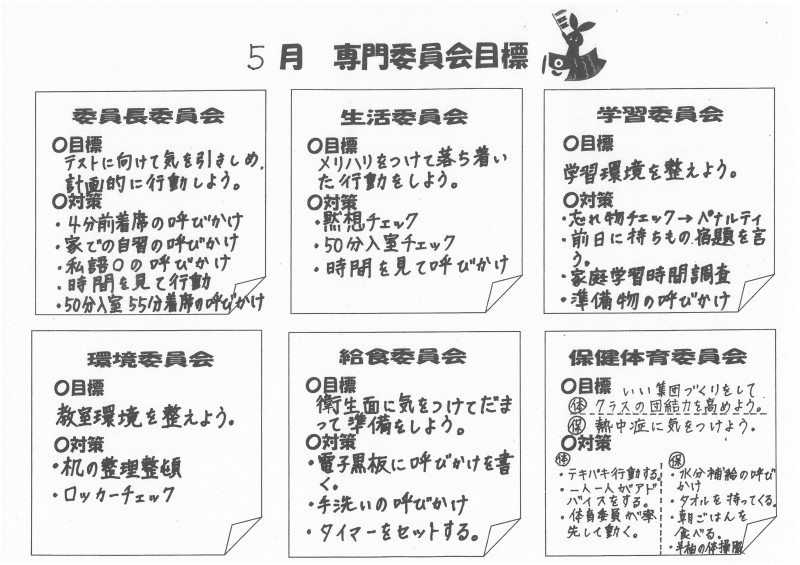 5月 専門委員会目標
委員長委員会
〇目標
テストに向けて気を引きしめ、
計画的に行動しよう。
〇対策
・4分前着席の呼びかけ
・家での自習の呼びかけ
・私語0の呼びかけ
・時間を見て行動
・50分入室 55分着席の呼びかけ
生活委員会
〇目標
メリハリをつけて落ち着い
た行動をしよう。
〇対策
・黙想チェック
・50分入室チェック
・時間を見て呼びかけ
学習委員会
〇目標
学習環境を整えよう。
〇対策
・忘れ物チェック→ペナルティ
・前日に持ちもの、宿題を言
う。
・家庭学習時間調査
・準備物の呼びかけ
環境委員会
〇目標
教室環境を整えよう。
〇対策
・机の整理整頓
・ロッカーチェック
給食委員会
〇目標
衛生面に気をつけてだま
って準備をしよう。
〇対策
・電子黒板に呼びかけを書
く。
・手洗いの呼びかけ
・タイマーをセットする。
保健体育委員会
〇目標 いい集団づくりをして
体 クラスの団結力を高めよう。
保 熱中症に気をつけよう。
〇対策
体
・テキパキ行動する。
・一人一人がアド
バイスをする。
・体育委員が率
先して動く。
保
・水分補給の呼び
かけ
・タオルを持ってくる。
・朝ごはんを
食べる。
・半袖の体操服